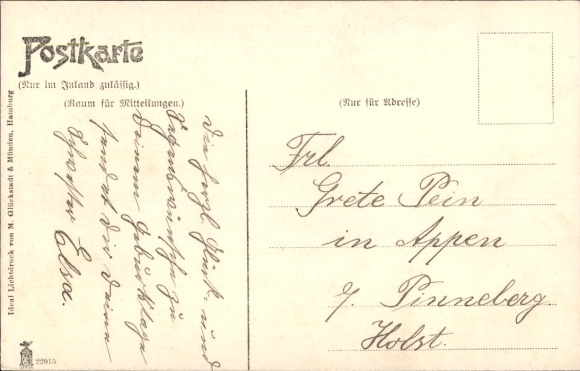 Postkarte
(Nur im Inland zulässig.)
(Raum für Mitteilungen.)
(Nur für Adresse)
Die herzl. Glück- und
Segenswünsche zu
Deinem Geburtstage
sendet dir deine
Schwester Elsa.
Frl.
Grete Pein
in Appen
b/ Pinneberg
Holst.
Ideal Lichtdruck von M. Glückstadt & Münden, Hamburg
22915